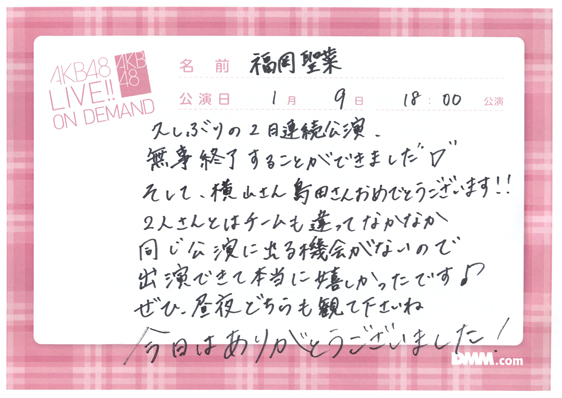 AKB48
LIVE!!
ON DEMAND
AKB
48
名前 福岡聖菜
公演日 1月 9日 18:00 公演
久しぶりの2日連続公演、
無事終了することができました♡
そして、横山さん島田さんおめでとうございます!!
2人さんとはチームも違ってなかなか
同じ公演に出る機会がないので
出演できて本当に嬉しかったです♪
ぜひ、昼夜どちらも観て下さいね
今日はありがとうございました!
DMM.com